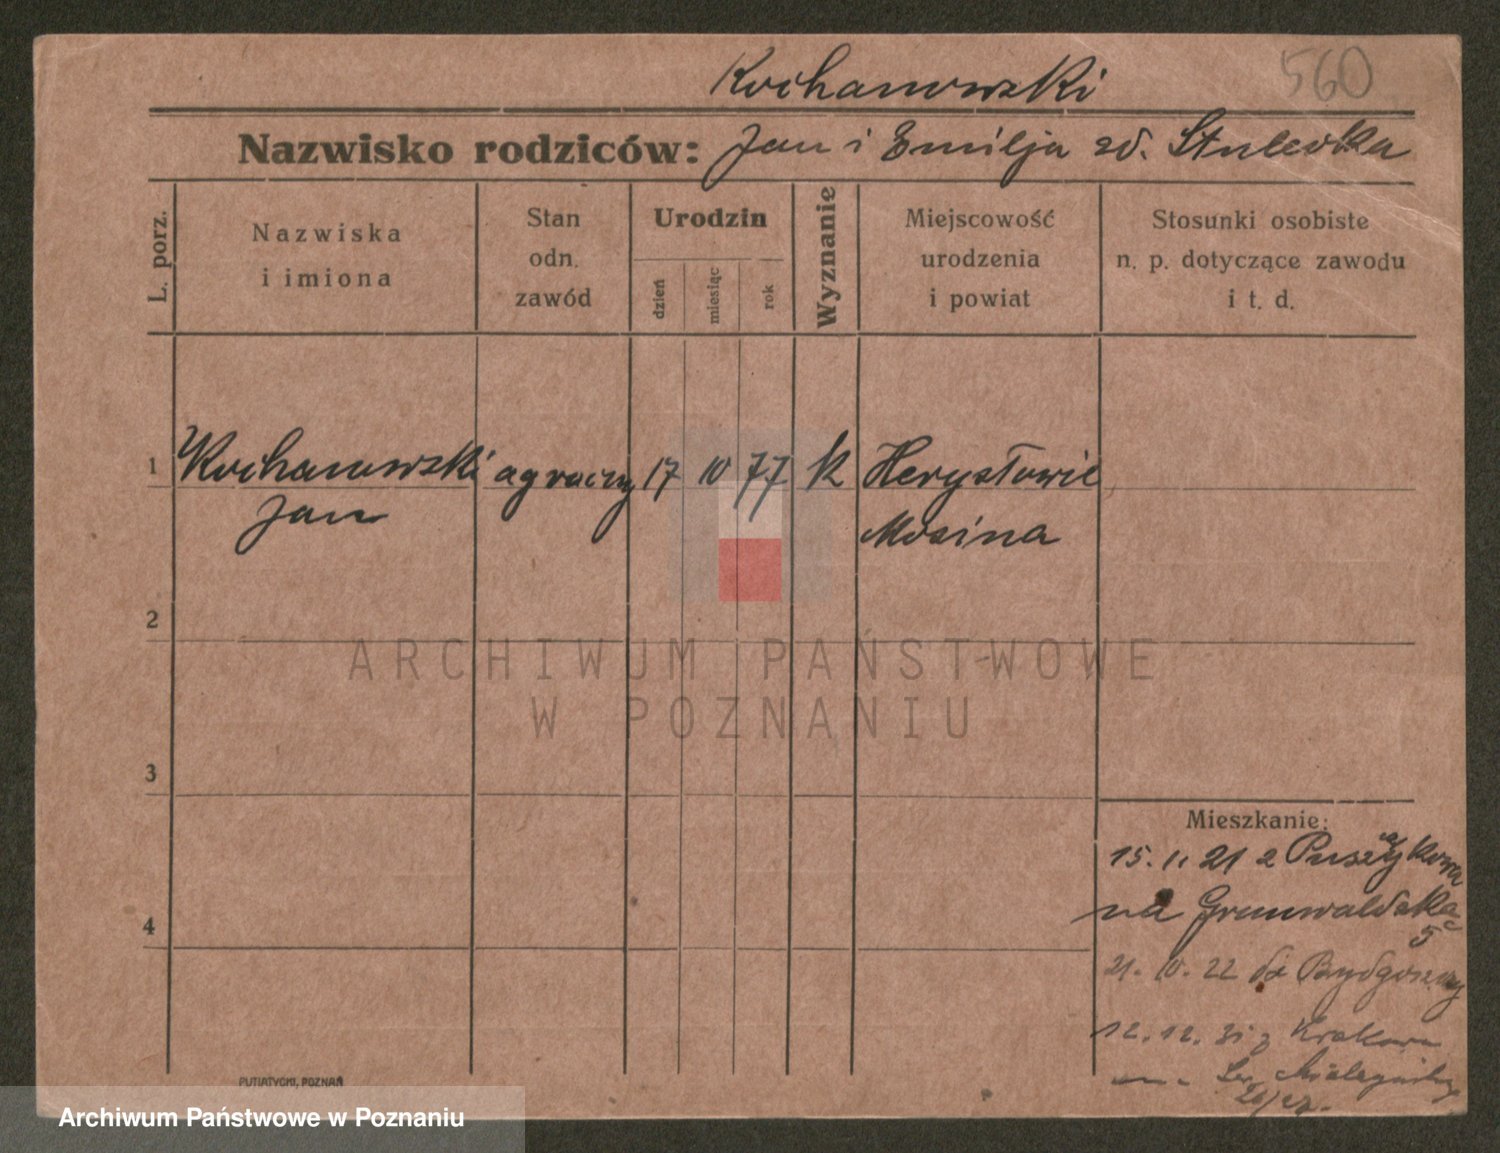 Kochanowski 560
Nazwisko rodziców: Jan i Emilja zd. Stulecka
L. porz.
Nazwiska
i imiona
Stan
odn.
zawód
Urodzin
dzień
miesiąc
rok
Wyznanie
Miejscowość
urodzenia
i powiat
Stosunki osobiste
n. p. dotyczące zawodu
i t. d.
1 Kochanowski 17 10 77 k
Jan Mosina
2
ARCHIWUM PAŃSTWOWE
W POZNANIU
3
Mieszkanie:
15. 1. 21 z Puszczykowa
na Grunwaldska
5
4
21. 10. 22 do Bydgoszczy
12. 12. 31 z Krakowa
PUTIATYCKI, POZNAŃ
Archiwum Państwowe w Poznaniu